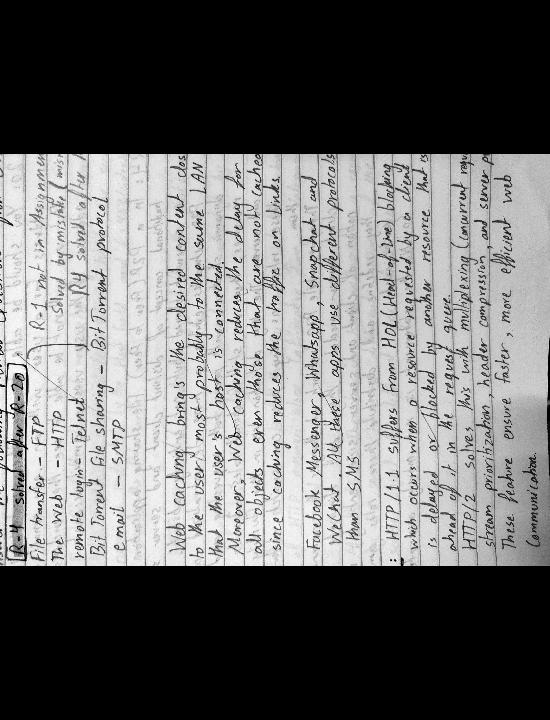 R-4 solved after R-20.
File transfer - FTP R-1 not in Assignmen
The web - HTTP Solved by mistake (
remote login - Telnet R4 solved after
Bit Torrent file sharing - Bit Torrent protocol
email - SMTP
Web caching brings the desired content clos
to the user, most probably to the same LAN
that the user's host is connected.
Moreover, Web caching reduces the delay for
all objects even those that are not cached
since caching reduces the traffic on links.
Facebook Messenger, Whatsapp, Snapchat and
Wechat All these apps use different protocols
than SMS.
: HTTP/1.1 suffers from HOL (Head-of-line) blocking
which occurs when a resource requested by a client
is delayed or blocked by another resource that is
ahead of it in the request queue.
HTTP/2 solves this with multiplexing (concurrent
stream prioritization, header compression, and server p
These feature ensure faster, more efficient web
communication.